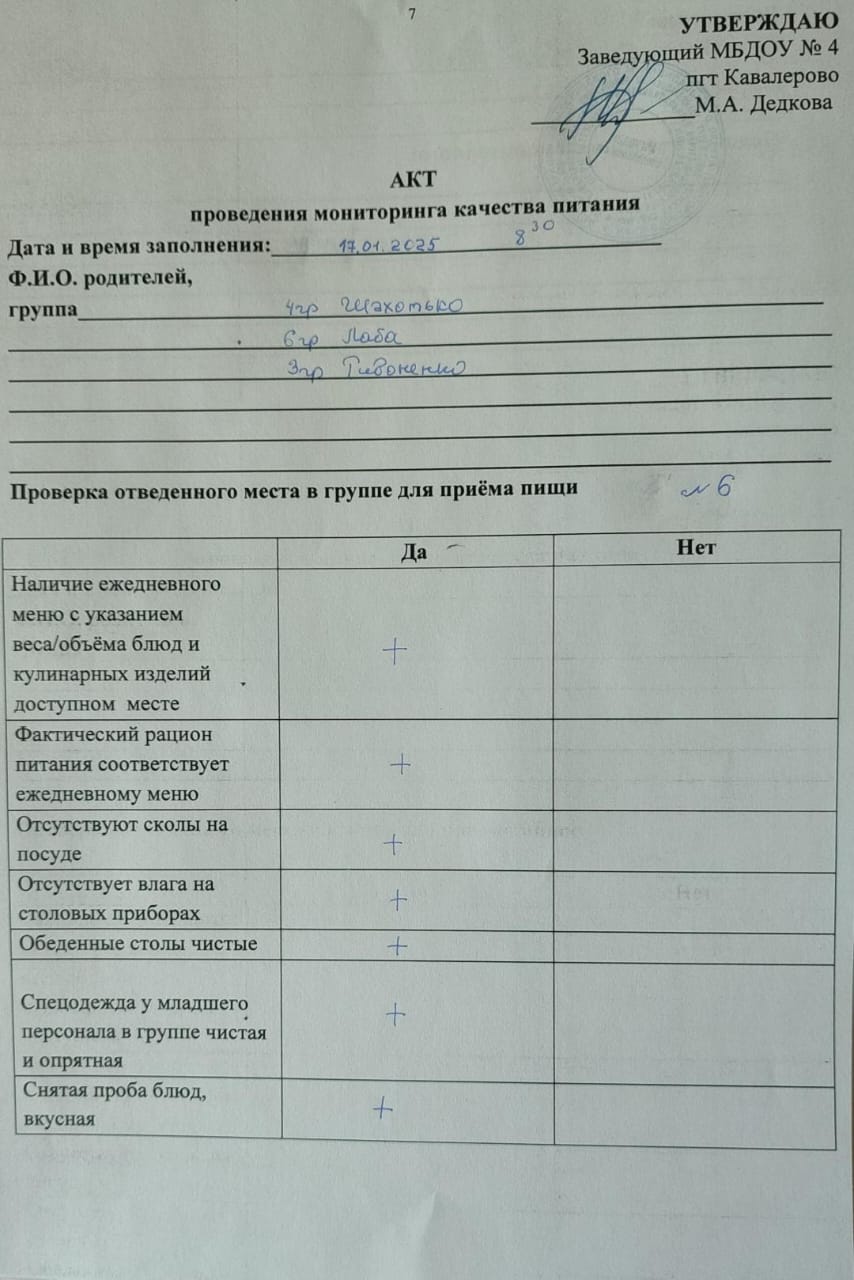 7
УТВЕРЖДАЮ
Заведующий МБДОУ № 4
пгт Кавалерово
М.А. Дедкова
АКТ
проведения мониторинга качества питания
Дата и время заполнения: 17.01.2025 8 30
Ф.И.О. родителей,
группа 4гр Шахотько
6гр Лаба
3гр Тивоненко
Проверка отведенного места в группе для приёма пищи № 6
Да Нет
Наличие ежедневного
меню с указанием
веса/объёма блюд и +
кулинарных изделий
доступном месте
Фактический рацион
питания соответствует +
ежедневному меню
Отсутствуют сколы на
посуде +
Отсутствует влага на
столовых приборах +
Обеденные столы чистые +
Спецодежда у младшего +
персонала в группе чистая
и опрятная
Снятая проба блюд, +
вкусная